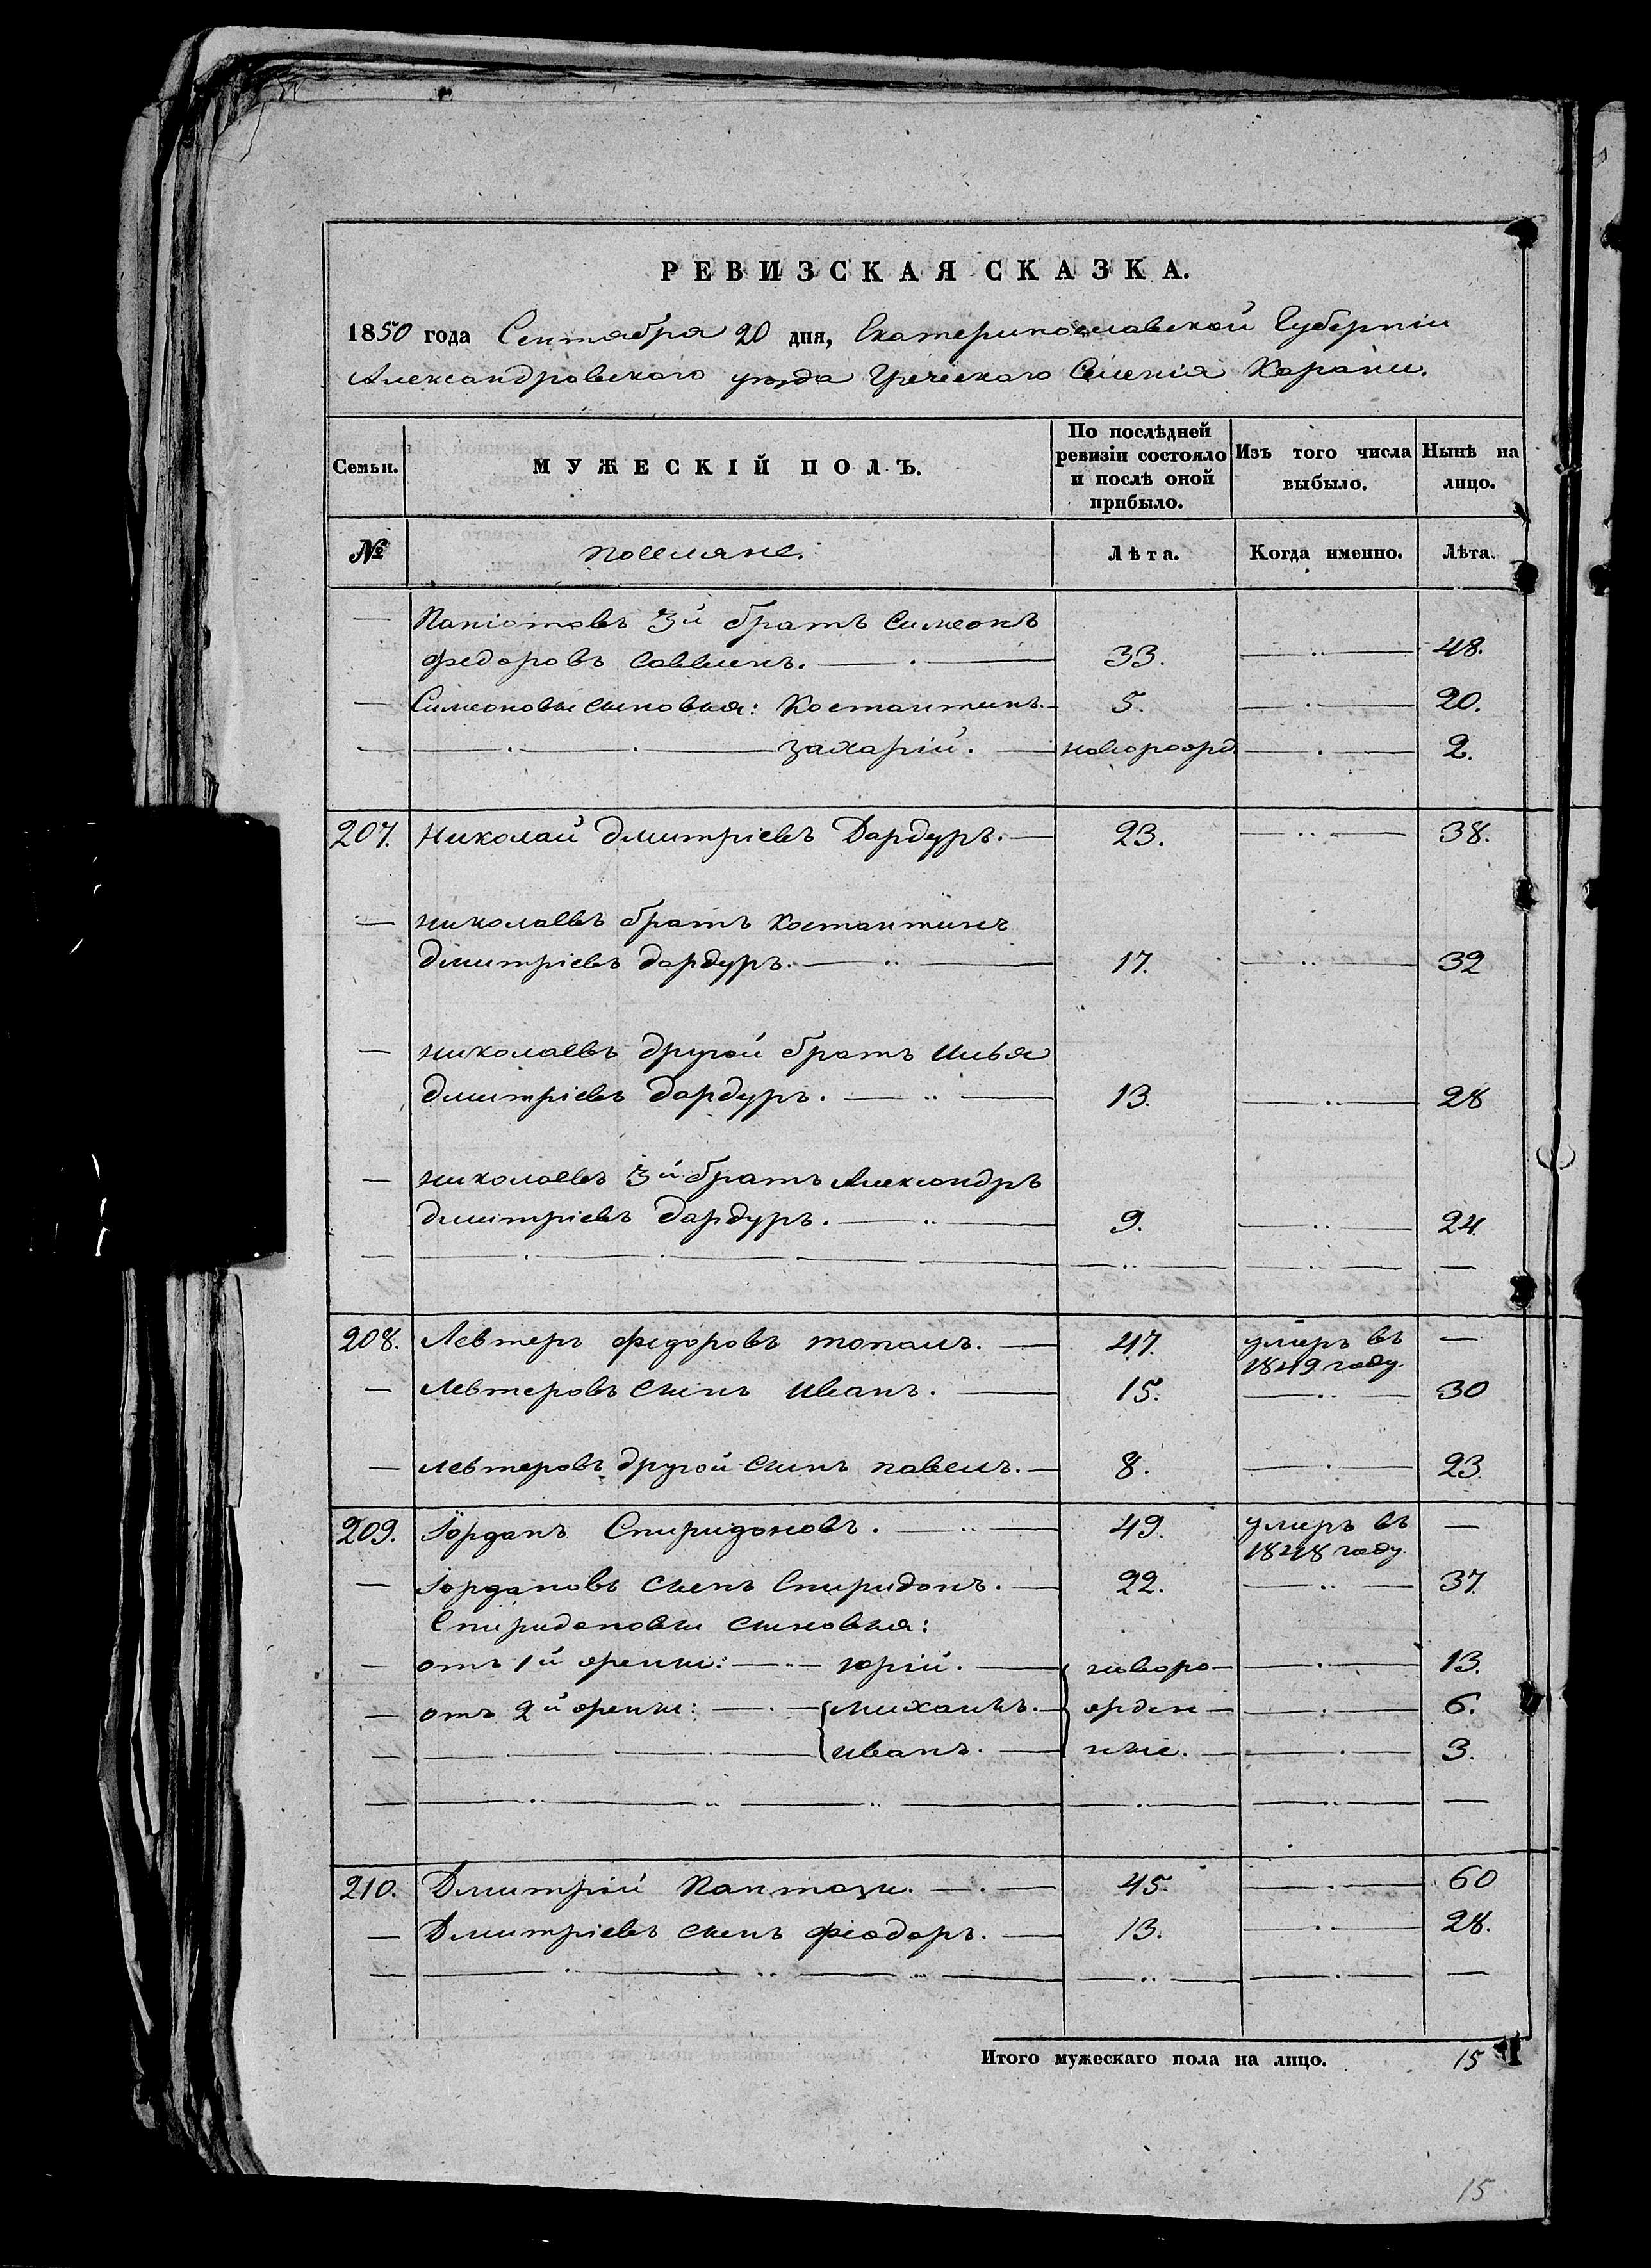 РЕВИЗСКАЯ СКАЗКА.
1850 года Сентября 20 дня, Екатеринославской Губерніи
Александровского уезда Греческого Селенія Карани.
Семьи. МУЖЕСКІЙ ПОЛЪ. По послѣдней ревизіи состояло и послѣ оной прибыло. Изъ того числа выбыло. Нынѣ на лицо.
№ поселяне. Лѣта. Когда именно. Лѣта.
— Паніотовъ 3й братъ Симеонъ
федоровъ Саввинъ. — 33. — 48.
— Симеоновы сыновья: Костантинъ. 5. — 20.
— — захарій. — новорожд. — 2.
207. Николай дмитріевъ Дардуръ. — 23. — 38.
— николаевъ братъ костантинъ
дмитріевъ дардуръ. — 17. — 32
— николаевъ другой братъ илья
дмитріевъ дардуръ. — 13. — 28
— николаевъ 3й братъ Александръ
дмитріевъ дардуръ. — 9. — 24.
208. Левтеръ федоровъ топалъ. — 47. умеръ въ —
1849 году.
— Левтеровъ сынъ иванъ. — 15. — 30
— левтеровъ другой сынъ павелъ. — 8. — 23.
209. Іорданъ Спиридоновъ. — 49. умеръ въ —
1848 году.
— Іордановъ сынъ Спиридонъ. — 22. — 37.
Спиридоновы сыновья:
— отъ 1й жены: — юрій. — новоро— — 13.
— отъ 2й жены: — михаилъ. — жден— — 6.
— — иванъ. — ные. — 3.
210. Дмитрій Пантази. — 45. — 60
— Дмитріевъ сынъ феодоръ. — 13. — 28.
Итого мужескаго пола на лицо. 15
15